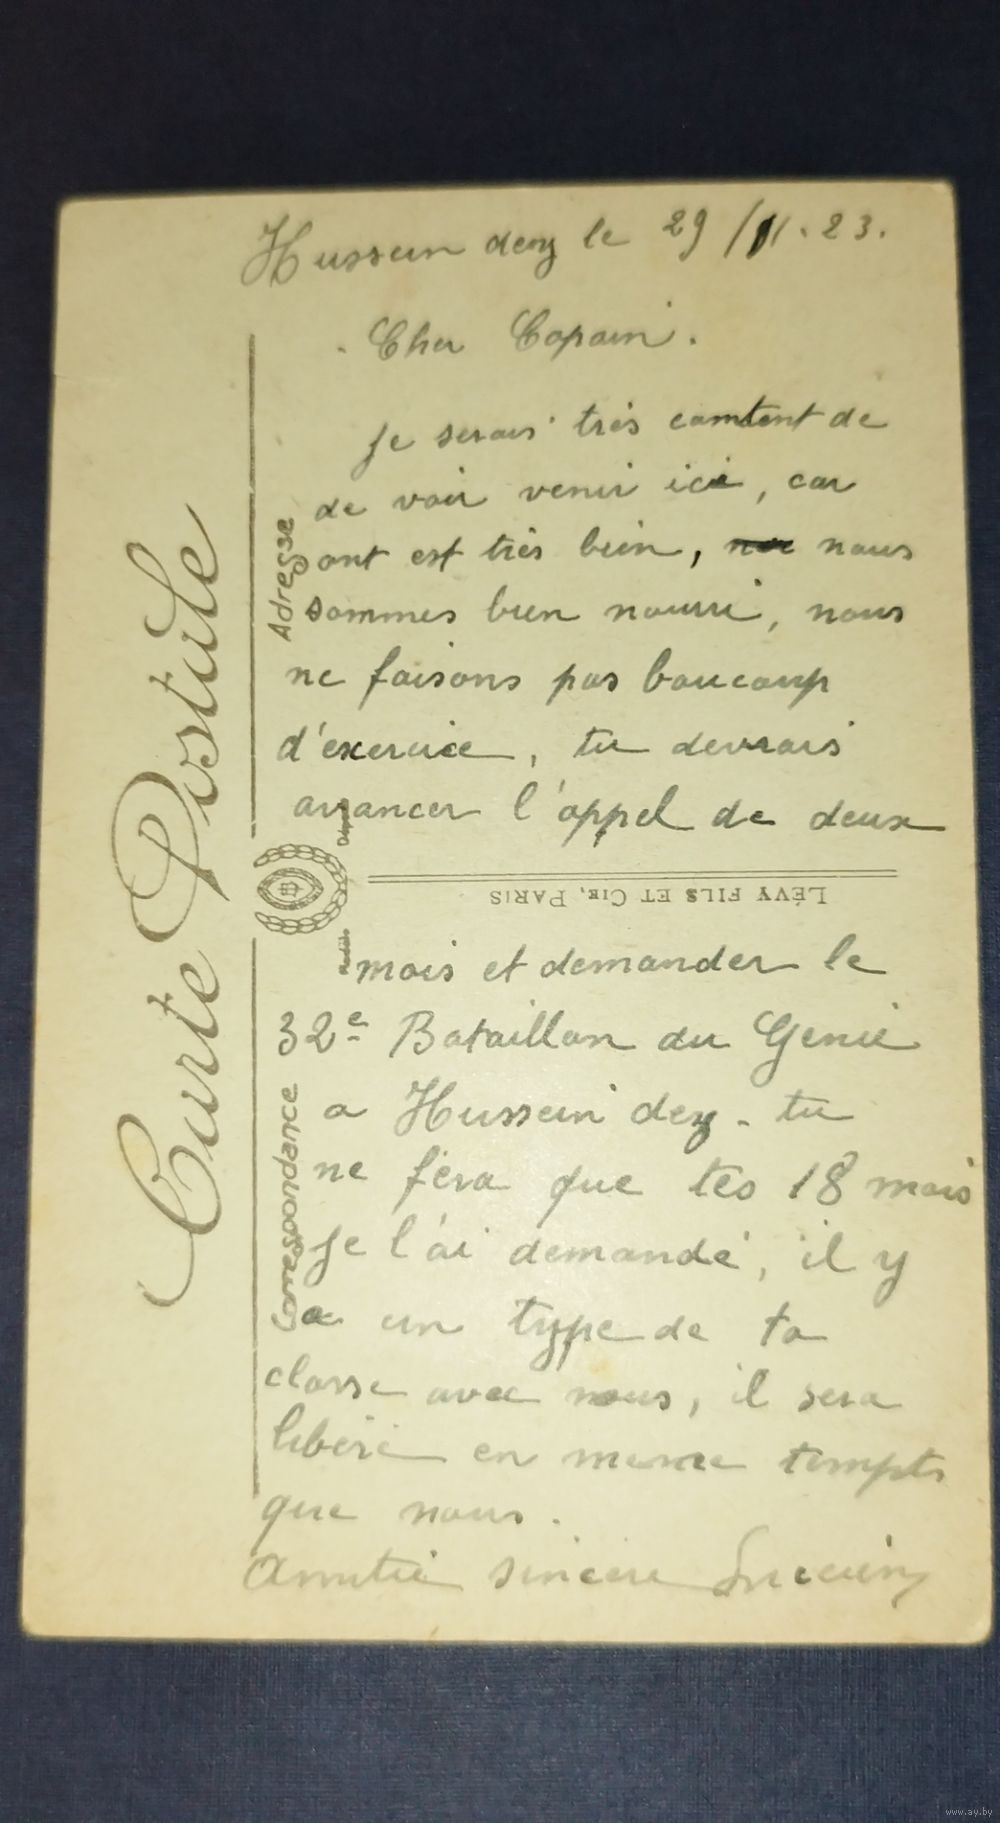 Hussein dey le 29/11.23.
Cher Copain.
Je serais très comtent de
de voir venir ici, car
ont est très bien, nous
sommes bien nourri, nous
ne faisons pas baucoup
d'exercice, tu devrais
avancer l'appel de deux
mois et demander le
32e Bataillon du Génie
a Hussein dey. tu
ne féra que tes 18 mois
Je l'ai demandé, il y
a un type de ta
classe avec nous, il sera
libéré en meme tempts
que nous.
Amitié sincère Lucien
Carte Postale
Adresse
Correspondance
Modèle
Déposé
LÉVY FILS ET CIE, PARIS
www.ay.by